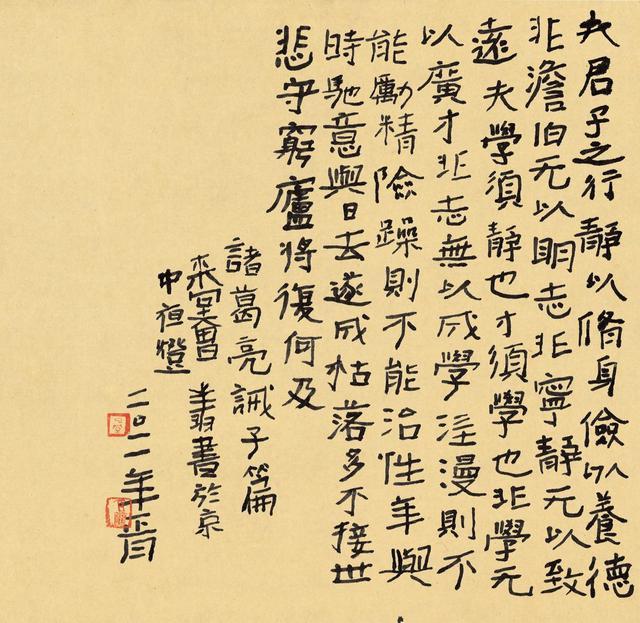 夫君子之行靜以脩身儉以養德
非澹泊无以明志非寧靜无以致
遠夫學須靜也才須學也非學无
以廣才非志無以成學淫漫則不
能勵精險躁則不能治性年與
時馳意與日去遂成枯落多不接世
悲守窮廬將復何及
諸葛亮誡子篇
曾翔書於京
中燈
二〇一一年正月